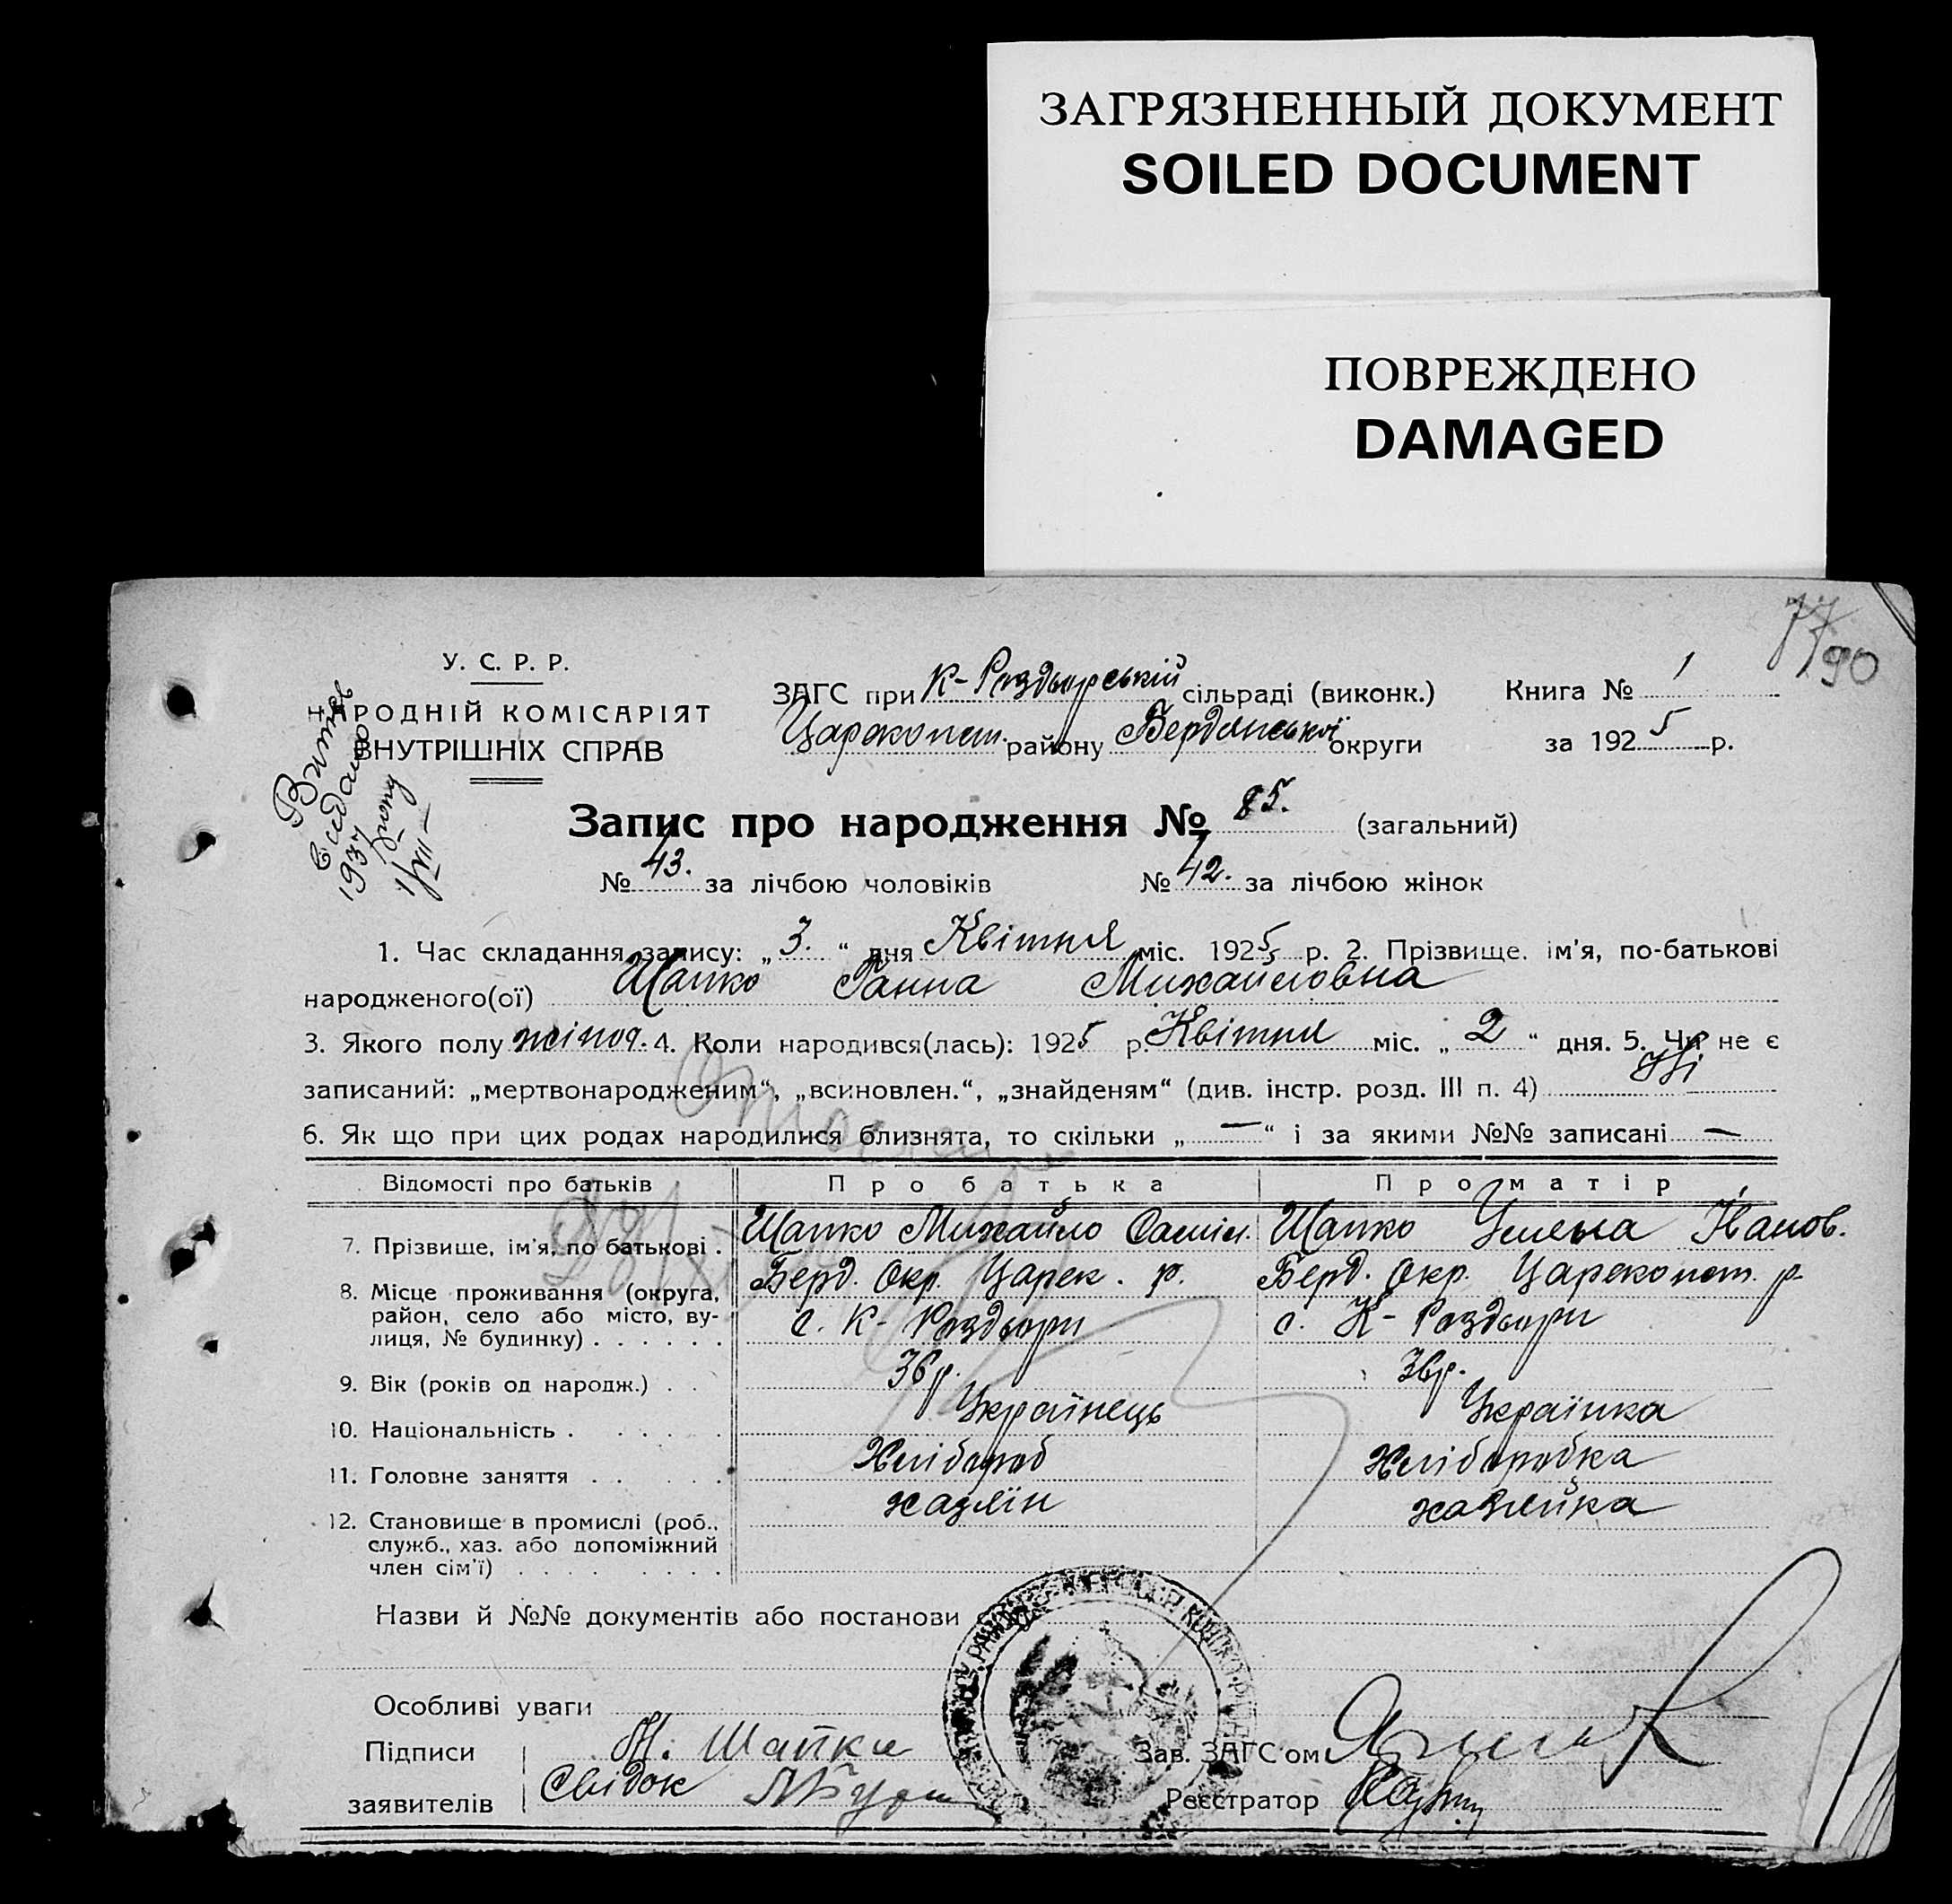 ЗАГРЯЗНЕННЫЙ ДОКУМЕНТ
SOILED DOCUMENT
ПОВРЕЖДЕНО
DAMAGED
77
90
У. С. Р. Р.
НАРОДНІЙ КОМІСАРІЯТ
ВНУТРІШНІХ СПРАВ
1937
ЗАГС при К-Роздорській сільраді (виконк.) Книга № 1
Царекопст. району Бердянської округи за 1925 р.
Запис про народження № 85. (загальний)
№ 43. за лічбою чоловіків № 42. за лічбою жінок
1. Час складання запису: „3.“ дня Квітня міс. 1925 р. 2. Прізвище. ім'я, по-батькові
народженого(ої) Шапко Ганна Михайловна
3. Якого полу жіноч. 4. Коли народився(лась): 1925 р. Квітня міс. „2“ дня. 5. Чи не є
записаний: „мертвонародженим“, „всиновлен.“, „знайденям“ (див. інстр. розд. III п. 4) Ні
6. Як що при цих родах народилися близнята, то скільки „—“ і за якими №№ записані —
Відомості про батьків Про батька Про матір
7. Прізвище, ім'я, по батькові . Шапко Михайло Шапко Уляна Іванов.
8. Місце проживання (округа, Берд. Окр. Царек. р. Берд. Окр. Царекопст. р.
район, село або місто, ву-
лиця, № будинку) . . . . . . с. К-Роздори с. К-Роздори
9. Вік (років од народж.) . . 36 р. 36 р.
10. Національність . . . . . Українець Українка
11. Головне заняття . . . . Хлібороб Хліборобка
12. Становище в промислі (роб., хазяїн хазяйка
служб., хаз. або допоміжний
член сім'ї) . . . . . . . .
Назви й №№ документів або постанови
Особливі уваги
Підписи М. Шапка Зав. ЗАГС ом
заявителів Свідок Реєстратор